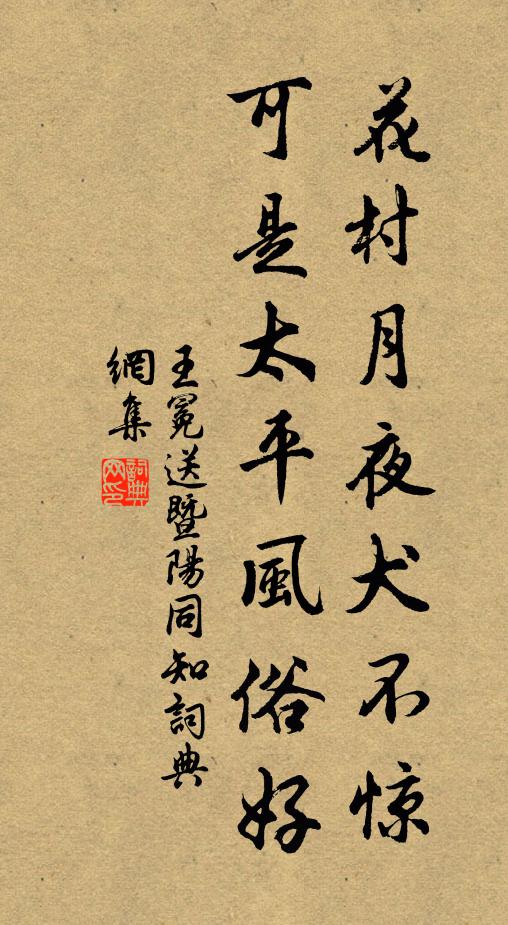 花村月夜犬不惊
可是太平風俗好
王冕送暨陽同知詞典
網集
詞典
网印